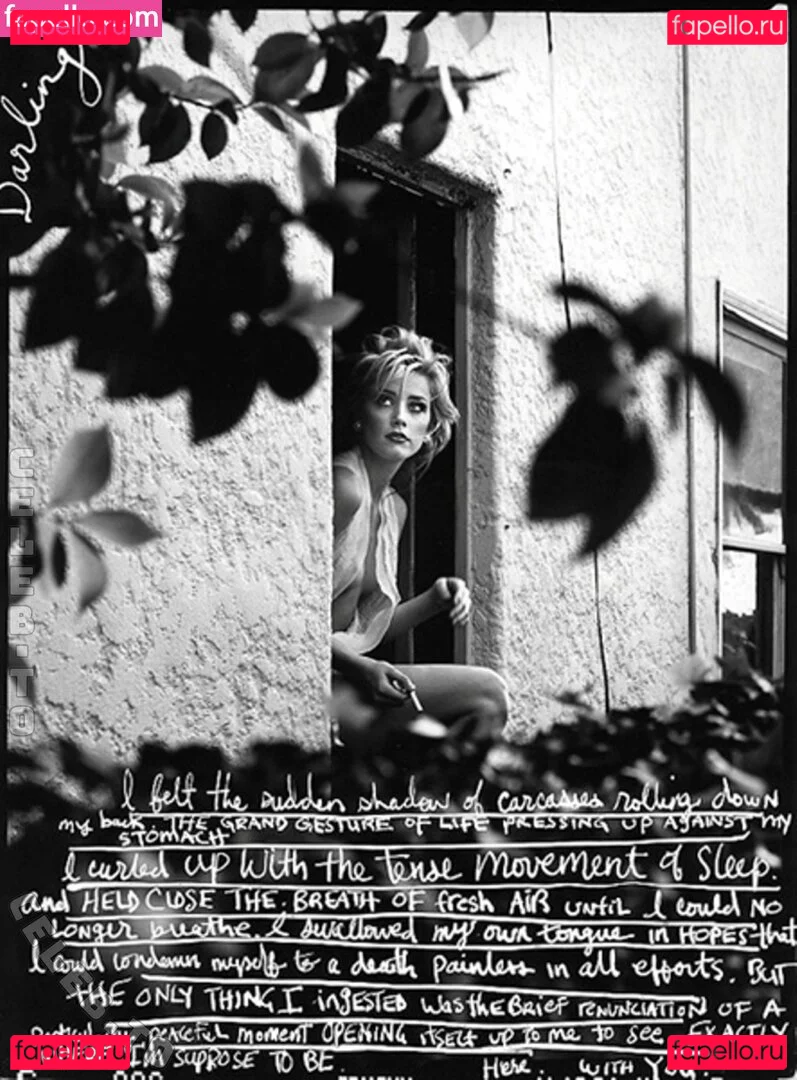 fapello.com
fapello.ru
fapello.ru
Darling
CELEB.TO
I felt the sudden shadow of carcasses rolling down
my back. THE GRAND GESTURE OF LIFE PRESSING UP AGAINST MY
STOMACH
I curled up With the tense Movement of Sleep.
and HELD CLOSE THE. BREATH OF fresh AIR UNTIL I could NO
longer breathe. I swallowed my own tongue in HOPES that
I could condemn myself to a death painless in all efforts. BUT
THE ONLY THING I iNGESTED Was the Brief RENUNCIATION OF A
peaceful moment OPENING itself up to me to see EXACTLY
CELEB.TO
fapello.ru
fapello.ru
I'M SUPROSE TO BE. Here. WITH. You.